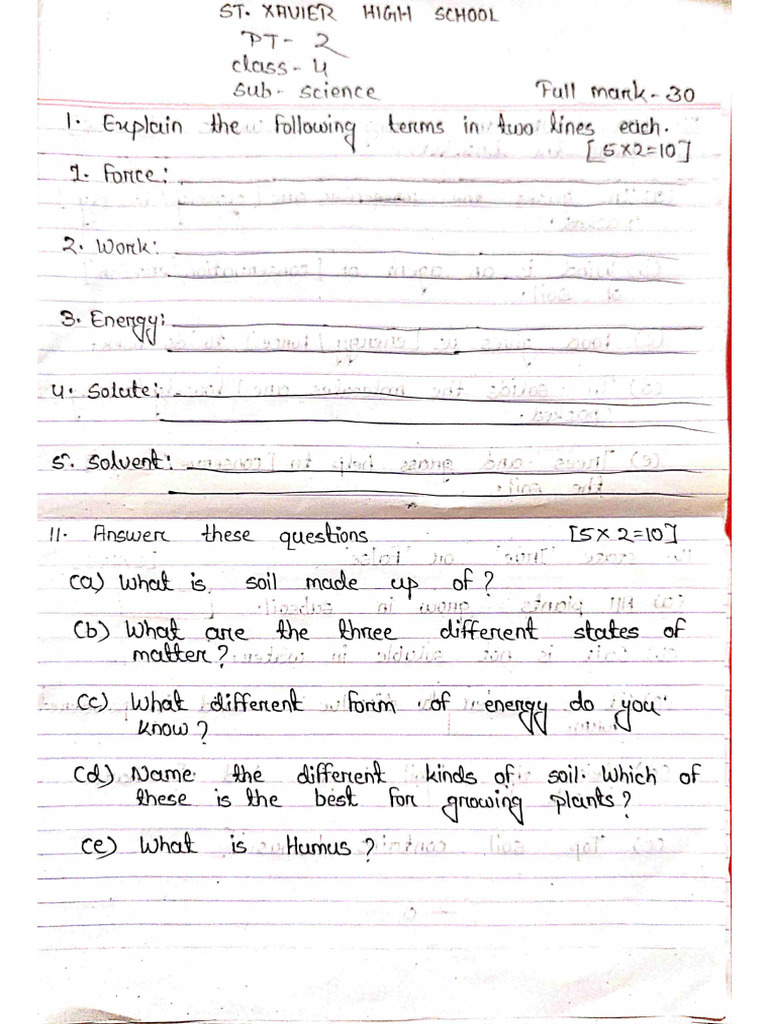 ST. XAVIER HIGH SCHOOL
PT- 2
class- 4
sub- science Full mark-30
1. Explain the following terms in two lines each.
[5×2=10]
1. Force:
2. Work:
3. Energy:
4. Solute:
5. Solvent:
11. Answer these questions [5×2=10]
(a) What is soil made up of?
(b) What are the three different states of
matter?
(c) What different form of energy do you
know?
(d) Name the different kinds of soil. Which of
these is the best for growing plants?
(e) What is Humus?